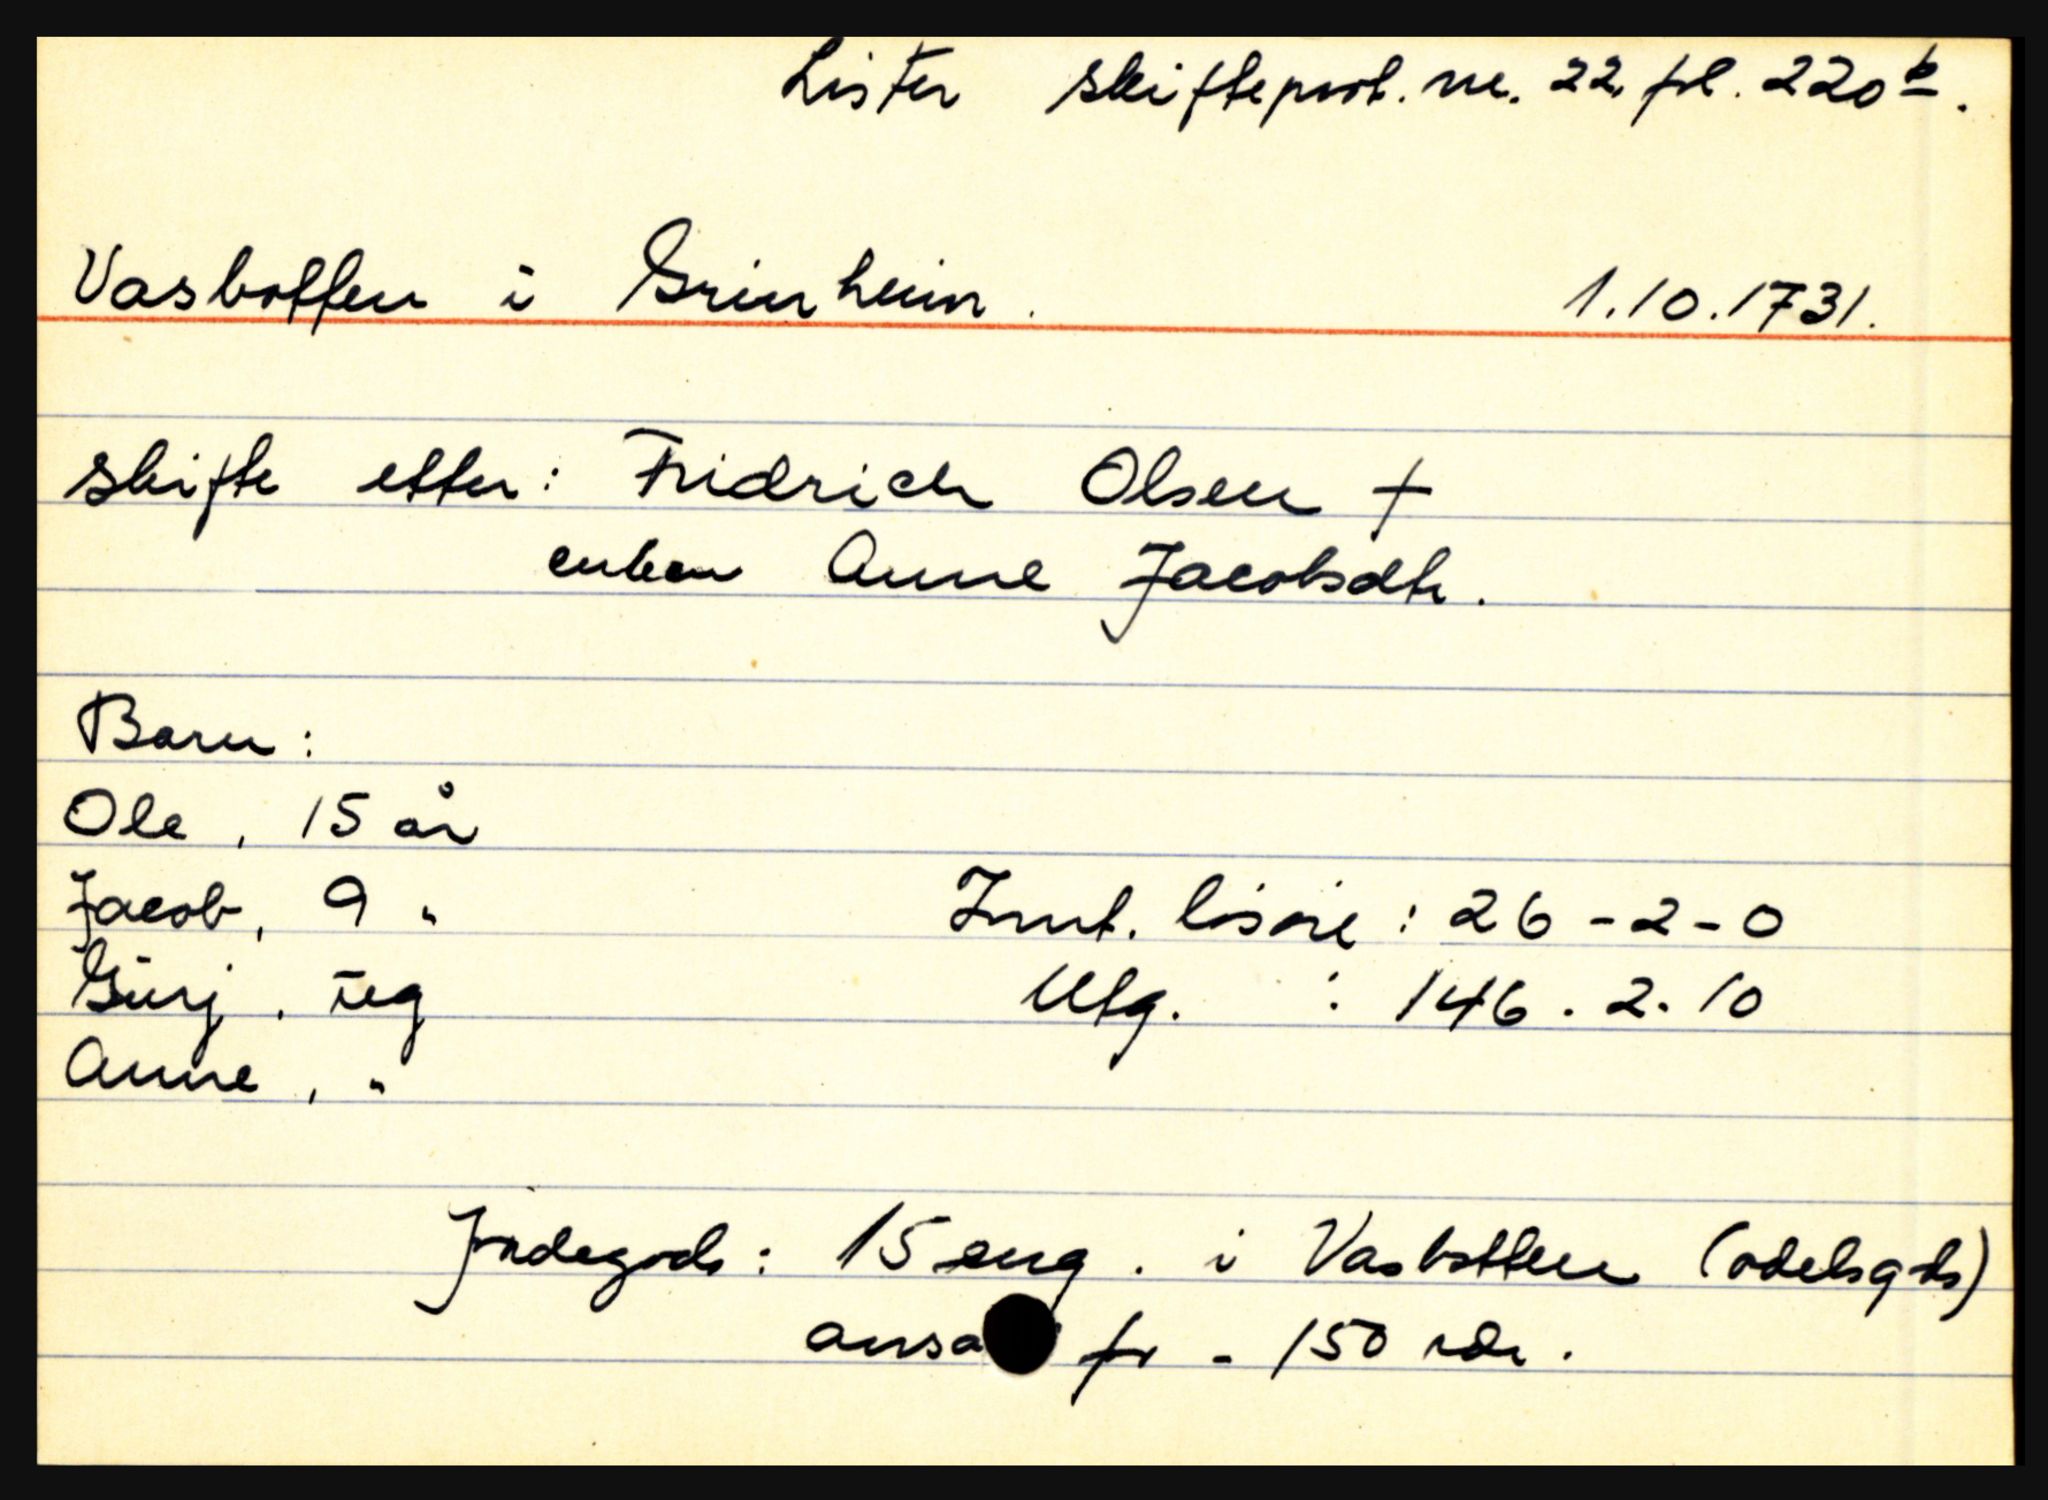 Lister skifteprot. nr. 22, fol. 220 b.
Vasbotten i Grinheim. 1.10.1731.
Skifte etter: Fridrich Olsen +
enken Anne Jacobsdtr.
Barn:
Ole, 15 år
Jacob, 9 " Innt. løsøre: 26-2-0
Guri, ug Utg. : 146.2.10
Anne, "
Jordegods: 15 eng. i Vasbotten (odelsgds)
ansa fr - 150 rdr.